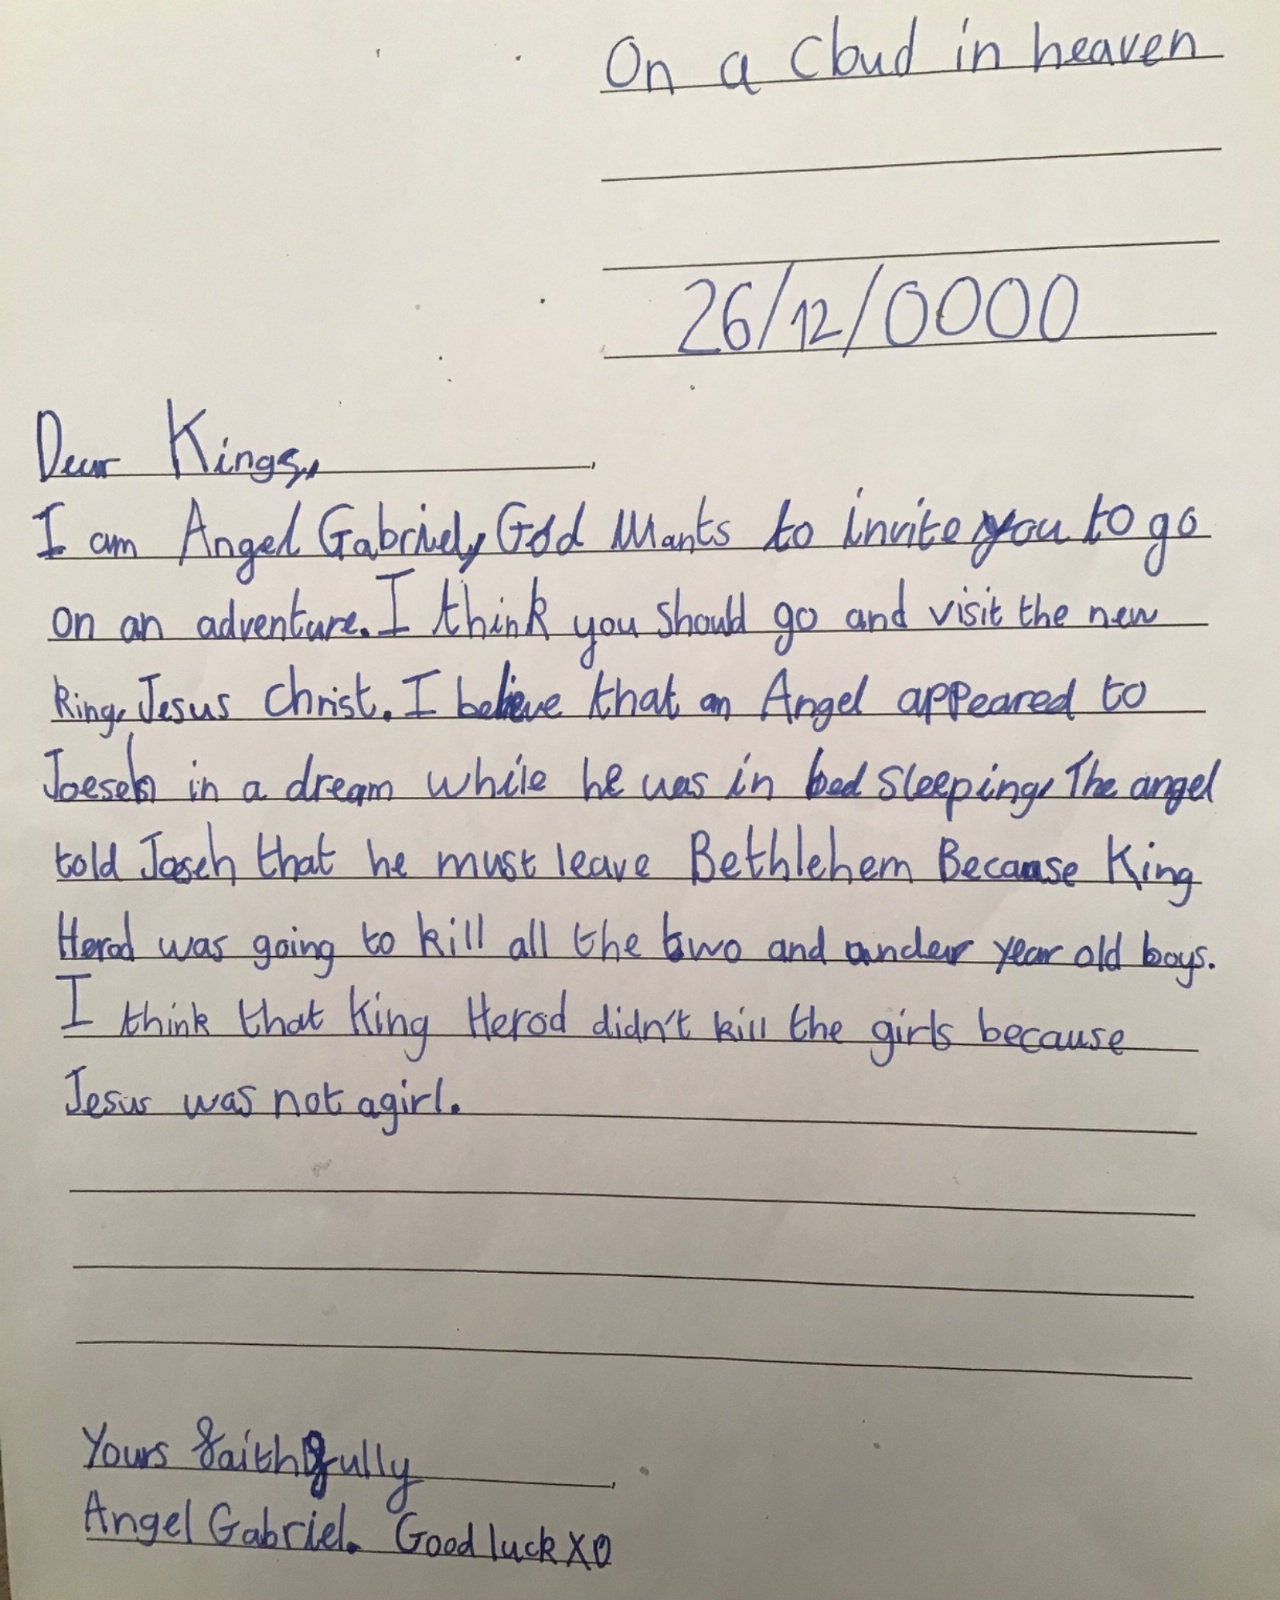 On a Cloud in heaven
26/12/0000
Dear Kings,
I am Angel Gabriel, God Wants to invite you to go
on an adventure. I think you should go and visit the new
king, Jesus Christ. I believe that an Angel appeared to
Joeseh in a dream while he was in bed sleeping, The angel
told Joseh that he must leave Bethlehem Because King
Herod was going to kill all the two and under year old boys.
I think that King Herod didn't kill the girls because
Jesus was not a girl.
Yours faithfully
Angel Gabriel. Good luck XO